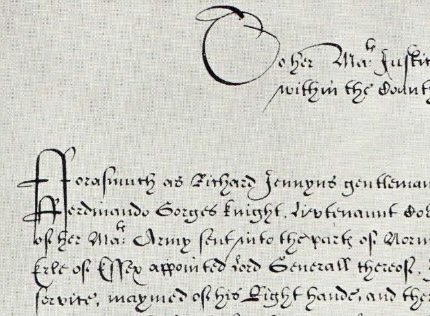 To her Ma:ᵗⁱᵉ Justic
within the County
Forasmuch as Richard Jennyns gentleman
Ferdinando Gorges knight, Livtenaunt Col
of her Ma:ᵗⁱᵉ Army sent into the parts of Norm
Erle of Essex appointed Lord Generall thereof,
service, maymed of his Right hande, and ther